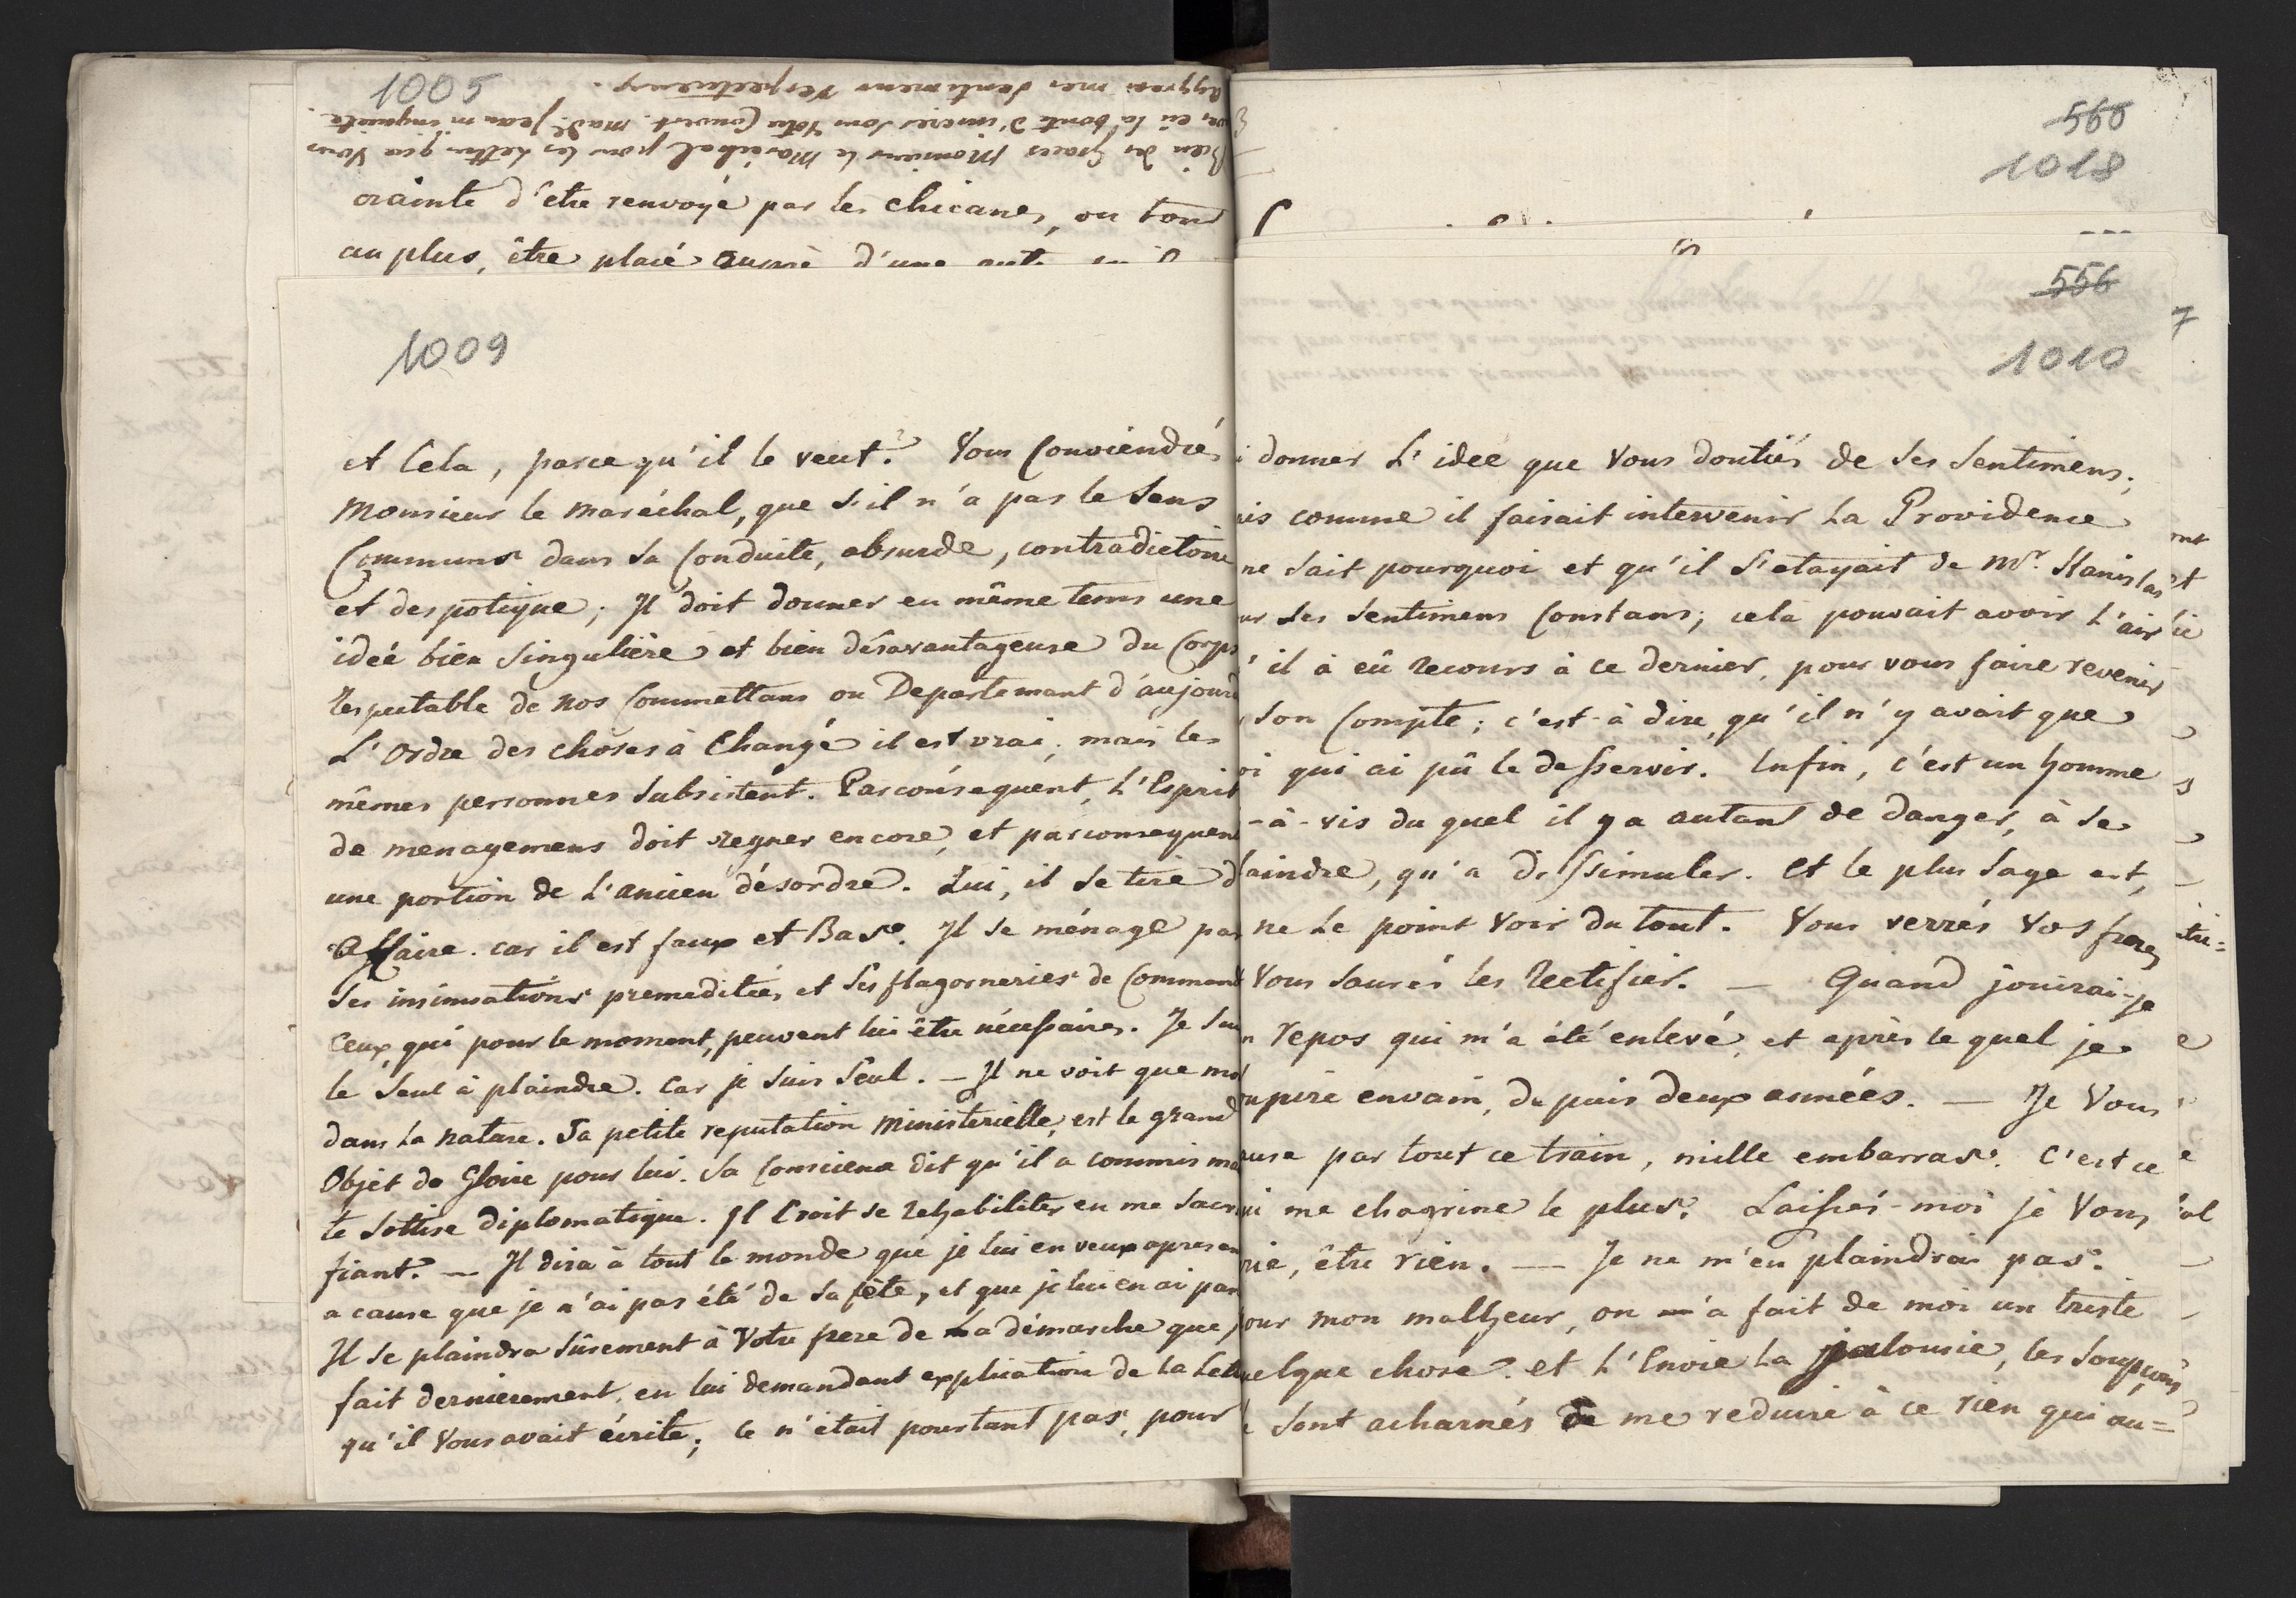 1005
Bien des Graces Monsieur le Maréchal pour les Lettres que Vous
eu la bonté d'inserer sous Votre Couvert. Mad. Jean m'inquiete.
Aggreés mes Sentimens respectueux.
crainte d'être renvoyé par les chicanes, ou tout
au plus, être placé auprè d'une
1009
et Cela, parce qu'il le veut? Vous Conviendrés
Monsieur le maréchal, que s'il n'a pas le Sens
Commun dans sa Conduite, absurde, contradictoire
et despotique; Il doit donner en même tems une
ideé bien Singulière et bien désavantageuse du Corps
Respectable de nos Commettans ou Departement d'aujourd
L'Ordre des choses à Changé il est vrai; mais les
mêmes personnes Subsistent. Parconséquent, L'Esprit
de menagemens doit regner encore, et parconsequent
une portion de L'ancien désordre. Lui, il se tire d
Affaire. car il est faux et Bas. Il se ménage par
Ses insinuations premeditées, et Ses flagorneries de Comment
Ceux, qui pour le moment, peuvent lui être nécessaires. Je Suis
le Seul à plaindre. Car je Suis Seul. — Il ne voit que moi
dans la nature. Sa petite reputation Ministerielle, est le grand
Objet de Gloire pour lui. Sa Conscience dit qu'il a commis
te Sottise diplomatique. Il Croit se Rehabiliter en me Sacri
fiant. — Il dira à tout le monde que je lui en veux apres
a cause que je n'ai pas été de Sa fête, et que je lui en ai
Il se plaindra Sûrement à Votre frere de La démarche que j
fait dernierement, en lui demandant explication de la Lettre
qu'il Vous avait écrite; Ce n'était pourtant pas, pour
560
1018
556
7
1010
donner L'idee que Vous doutiés de ses Sentimens;
is comme il faisait intervenir La Providence
ne Sait pourquoi et qu'il S'etayait de Mr. Stanislas
ur Ses Sentimens Constans; cela pouvait avoir L'air
'il à eû Recours à ce dernier, pour vous faire revenir
Son Compte; c'est-à dire, qu'il n'y avait que
oi qui ai pû le desservir. Enfin, c'est un homme
-à-vis du quel il y a autant de danger, à se
laindre, qu'a dissimuler. Et le plus Sage est,
ne Le point Voir du tout. Vous verrés Vos freres
Vous Saurés les Rectifier. — Quand jouirai-je
n repos qui m'a été enlevé, et après le quel je
oupire envain, depuis deux années. — Je Vous
ause par tout ce train, mille embarras. C'est ce
ui me chagrine le plus. Laissés-moi je Vous
rie, être rien. — Je ne m'en plaindrai pas.
our mon malheur, on a fait de moi un triste
uelque chose. et L'Envie La jalousie, les Soupçons
Sont acharnés de me reduire à ce rien qui au=